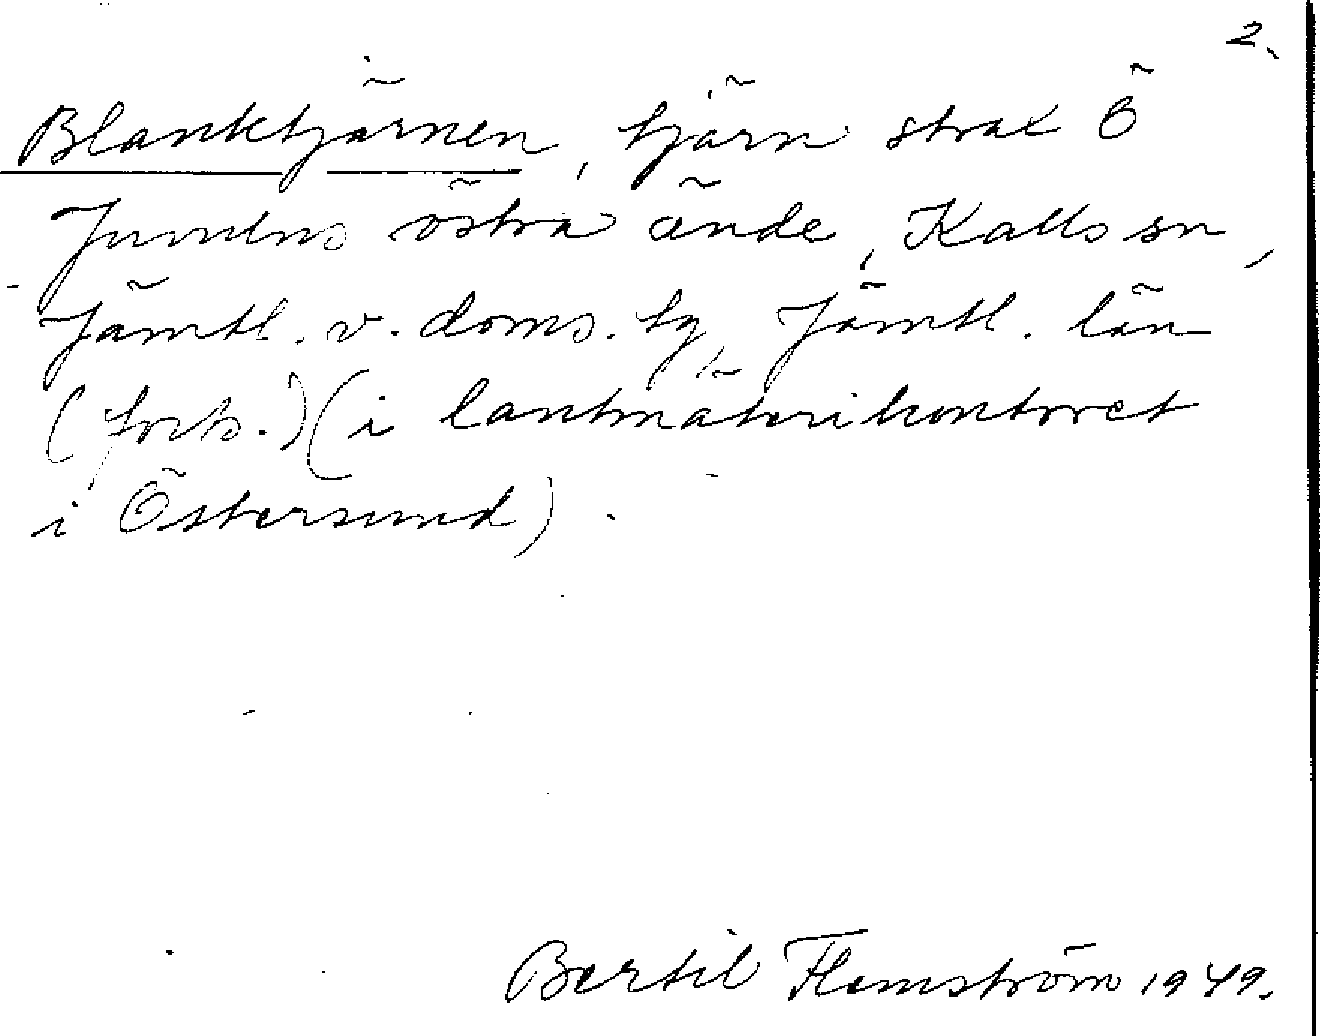 2.
Blanktjärnen, tjärn strax Ö
Juvulns östra ände, Kalls sn,
Jämtl. v. doms. tg, Jämtl. län
(forts.) (i lantmäterikontoret
i Östersund).
Bertil Flemström 1949.